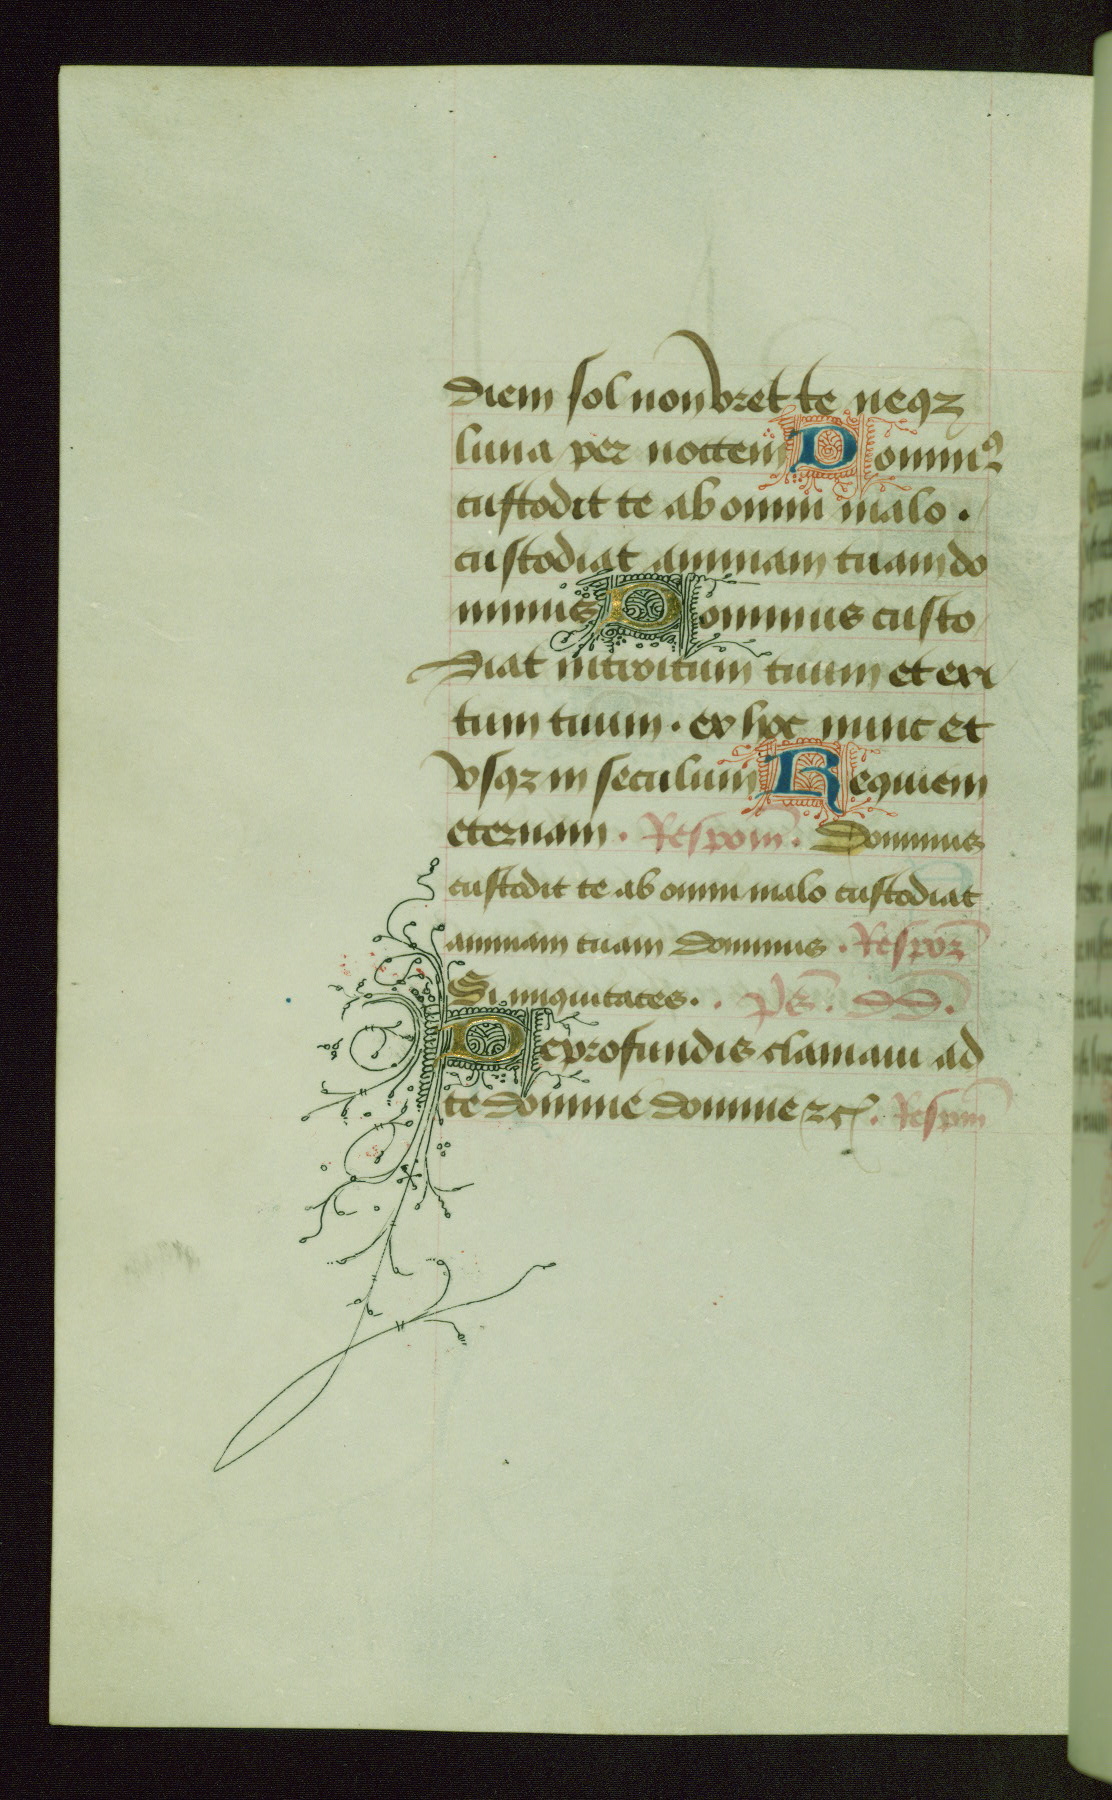 diem sol non vret te neqz
luna per noctem Dominꝰ
custodit te ab omni malo .
custodiat animam tuam do
minus Dominus custo
diat introitum tuum et exi
tum tuum . ex hoc nunc et
vsqz in seculum Requiem
eternam . Respom̄ . Dominus
custodit te ab omni malo custodiat
animam tuam dominus . Respoz̄
Si iniquitates . . ps̄ . dd̄ .
De profundis clamaui ad
te domine domine ⁊c̄ . Respm̄